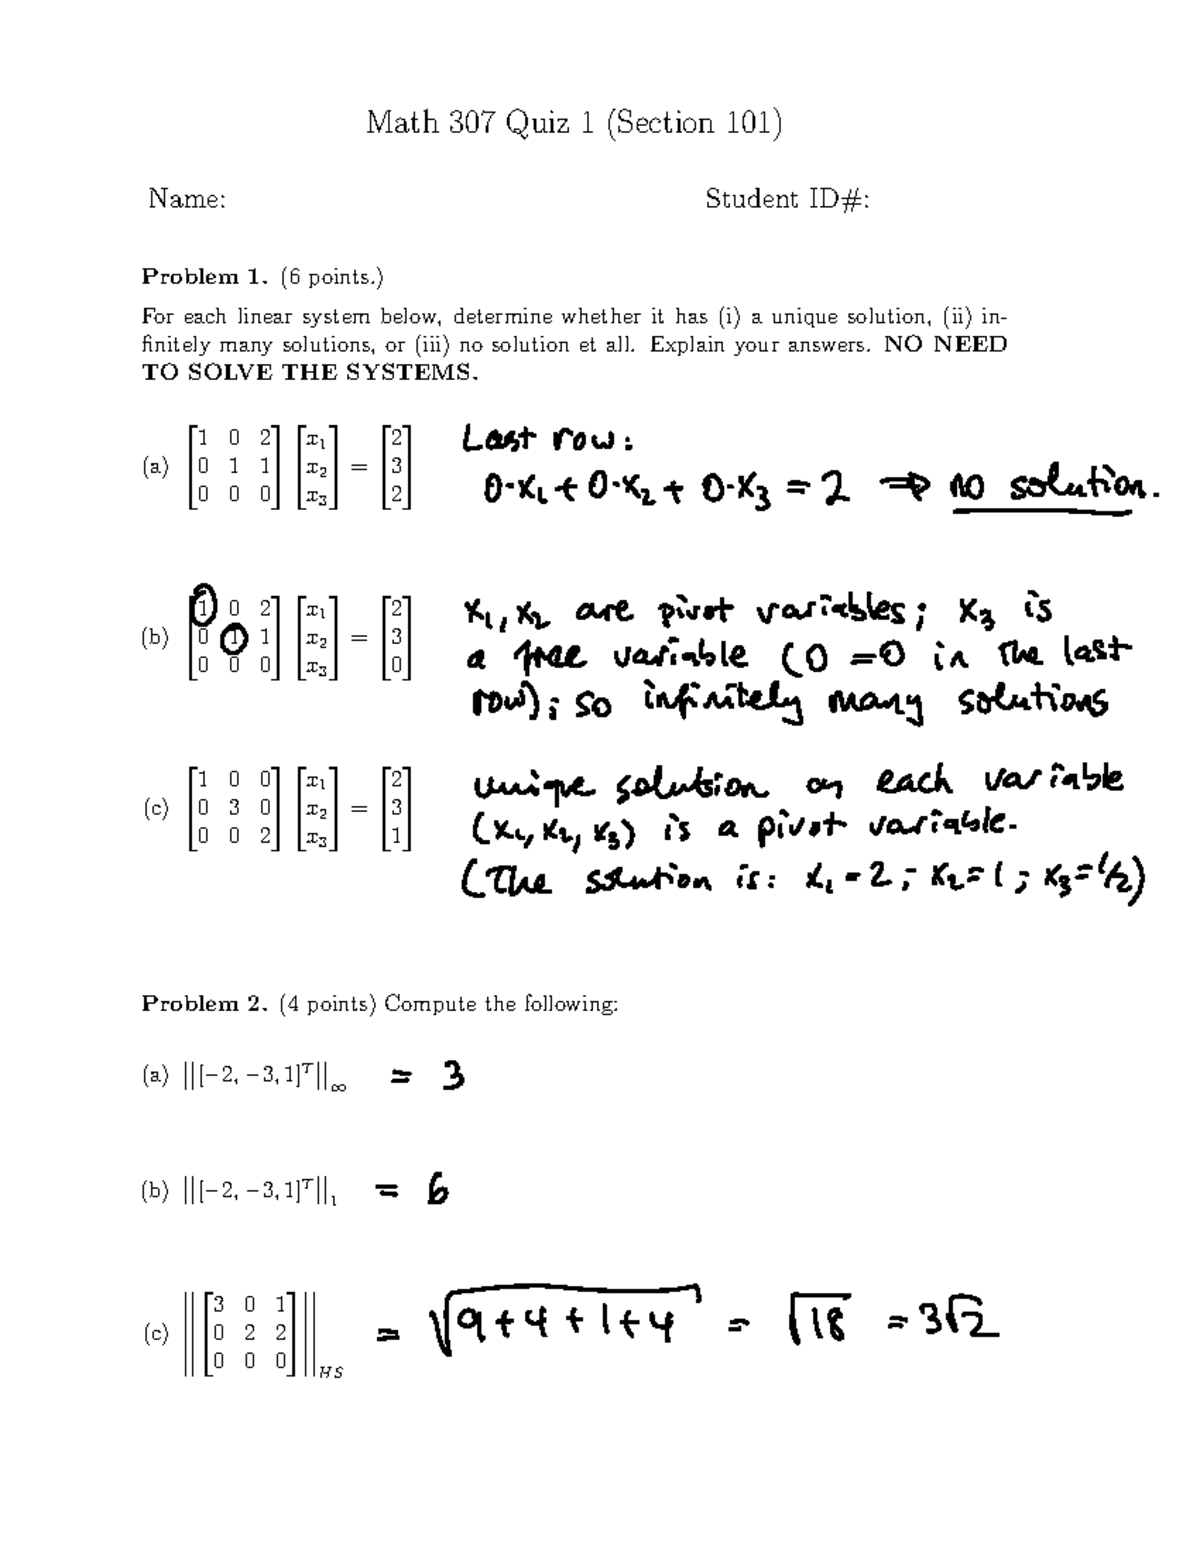 Math 307 Quiz 1 (Section 101)
Name: Student ID#:
Problem 1. (6 points.)
For each linear system below, determine whether it has (i) a unique solution, (ii) in-
finitely many solutions, or (iii) no solution et all. Explain your answers. NO NEED
TO SOLVE THE SYSTEMS.
(a) [1 0 2; 0 1 1; 0 0 0] [x₁; x₂; x₃] = [2; 3; 2]
Last row:
0·x₁ + 0·x₂ + 0·x₃ = 2 ⇒ no solution.
(b) [1 0 2; 0 1 1; 0 0 0] [x₁; x₂; x₃] = [2; 3; 0]
x₁, x₂ are pivot variables; x₃ is
a free variable (0 = 0 in the last
row); so infinitely many solutions
(c) [1 0 0; 0 3 0; 0 0 2] [x₁; x₂; x₃] = [2; 3; 1]
unique solution as each variable
(x₁, x₂, x₃) is a pivot variable.
(The solution is: x₁ = 2; x₂ = 1; x₃ = 1/2)
Problem 2. (4 points) Compute the following:
(a) ||[−2, −3, 1]ᵀ||∞ = 3
(b) ||[−2, −3, 1]ᵀ||₁ = 6
(c) ||[3 0 1; 0 2 2; 0 0 0]||HS = √(9+4+1+4) = √18 = 3√2